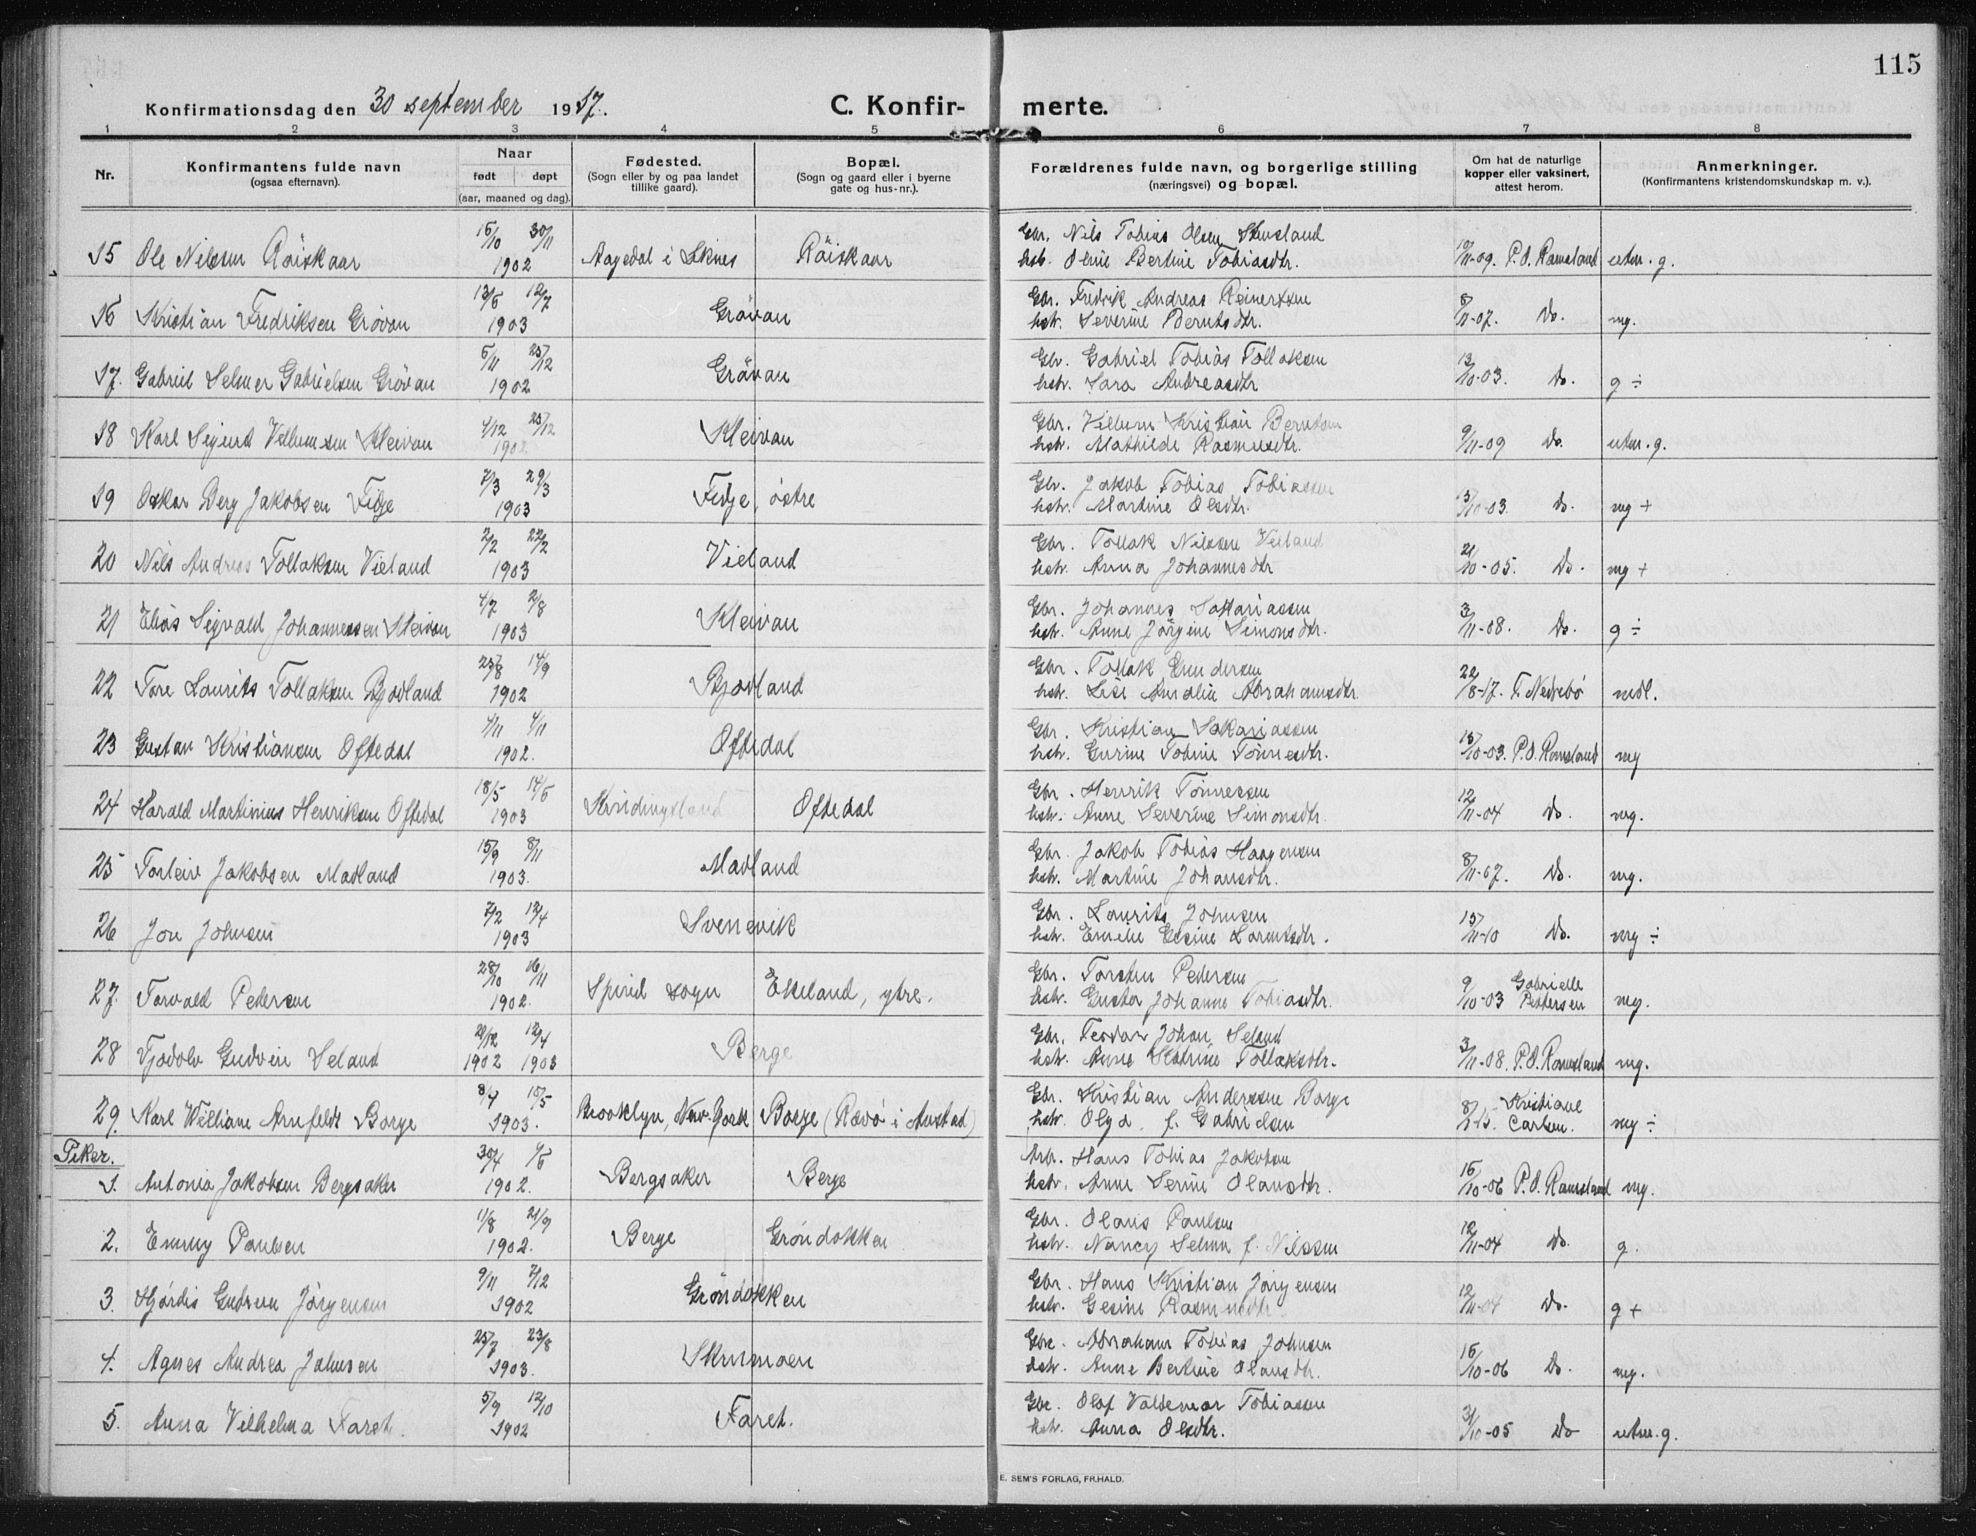 115
Konfirmationsdag den 30 september 1917. C. Konfirmerte.
1 2 3 4 5 6 7 8
Nr. Konfirmantens fulde navn (ogsaa efternavn). Naar født døpt (aar, maaned og dag). Fødested. (Sogn eller by og paa landet tillike gaard). Bopæl. (Sogn og gaard eller i byerne gate og hus-nr.). Forældrenes fulde navn, og borgerlige stilling (næringsvei) og bopæl. Om hat de naturlige kopper eller vaksinert, attest herom. Anmerkninger. (Konfirmantens kristendomskundskap m. v.).
15 Ole Nilsen Röiskaar 15/10 30/11 1902 Aagedal i Röiskaar Gbr. Nils Tobias Olsen
hstr. Oline Bertine Tobiasdtr. 10/11-09. P.O. Ramsland utm. g.
16 Kristian Fredriksen Grövan 13/6 12/7 1903 Grövan Gbr. Fredrik Andreas Reinertsen
hstr. Severine Berntsdtr. 8/11-07. Do. mg.
17. Gabriel Selmer Gabrielsen Grövan 5/11 25/12 1902 Grövan Gbr. Gabriel Tobias Tollaksen
hstr. Sara Andreasdtr 13/10-03. Do. g ÷
18 Karl Sigurd Villumsen Kleivan 4/12 25/12 1902 Kleivan Gbr. Villum Kristian Berntsen
hstr. Mathilde Rasmusdtr. 9/11-09 Do. utm. g.
19 Oskar Berg Jakobsen Fidje 7/3 29/3 1903 Fidje, östre Gbr. Jakob Tobias Tobiassen
hstr. Martine Olsdtr. 13/10-03. Do. mg +
20 Nils Andreas Tollaksen Vieland 2/2 22/2 1903 Vieland Gbr. Tollak Nilsen Veiland
hstr. Anna Johannesdtr 21/10-05. Do. mg +
21 Elias Sigvald Johannessen Kleivan 4/7 2/8 1903 Kleivan Gbr. Johannes Sakariassen
hstr. Anne Jörgine Simonsdtr. 3/11-08. Do. g ÷
22 Tore Laurits Tollaksen Bjodland 25/8 14/9 1902 Bjodland Gbr. Tollak Gundersen
hstr. Lise Amalie Abrahamsdtr 22/8-17. T. Nedrebö mdl.
23 Gustav Kristiansen Oftedal 4/11 4/11 1902. Oftedal Gbr. Kristian Sakariassen
hstr. Gurine Tobine Tönnesdtr. 13/10-03. P.O. Ramsland mg
24 Harald Martinius Henriksen Oftedal 18/5 14/6 1903 Oftedal Gbr. Henrik Tönnessen
hstr. Anne Severine Simonsdtr. 12/11-04 Do. mg.
25 Torleiv Jakobsen Madland 15/9 8/11 1903. Madland Gbr. Jakob Tobias Haagensen
hstr. Martine Johansdtr. 8/11-07. Do. mg.
26 Jon Johnsen 7/2 12/4 1903 Svenevik Gbr. Laurits Johnsen
hstr. Emelie Gesine 15/11-10 Do. mg ÷
27. Torvald Pedersen 28/10 16/11 1902. Spind sogn Ekeland, ytre. Gbr. Torsten Pedersen
hstr. Gusta Johanne Tobiasdtr. 9/10-03 Gabrielle Pettersen mg.
28 Tjodolv Gudvin Seland 20/12 1902 12/4 1903 Berge Gbr. Teodor Johan Seland
hstr. Anne Katrine Tollaksdtr. 3/11-08. P.O. Ramsland mg.
29. Karl William Arnfeldt Borge 8/4 15/5 1903. Brooklyn, New-York Borge (Rævö i Austad) Gbr. Kristian Anderssen Borge
hstr. Olga f. Gabrielsen Kristiane Carlsen. mg ÷
Piker.
1. Antonia Jakobsen Bergsaker 30/4 1/6 1902. Bergsaker Berge Arb. Hans Tobias Jakobsen
hstr. Anne Serine Olausdtr. 15/10-06 P.O. Ramsland mg.
2. Emmy Paulsen 11/8 21/9 1902. Berge Gröndokken Gbr. Olaus Paulsen
hstr. Nancy Selma f. Nilssen 12/11-04 Do. g.
3. Hjördis Gudrun Jörgensen 9/11 7/12 1902 Gröndokken Gbr. Hans Kristian Jörgensen
hstr. Gesine Rasmusdtr. 12/11-04 Do. g +
4. Agnes Andrea Johnsen 25/7 23/8 1903. Skrumoen Gbr. Abraham Tobias Johnsen
hstr. Anne Bertine Olausdtr. 15/10-06 Do. mg.
5. Anna Vilhelma Faret. 5/9 12/10 1902 Faret. Gbr. Olaf Valdemar Tobiassen
hstr. Anna Olsdtr. 31/10-05 Do utm. g.
E. SEM'S FORLAG, FR.HALD.